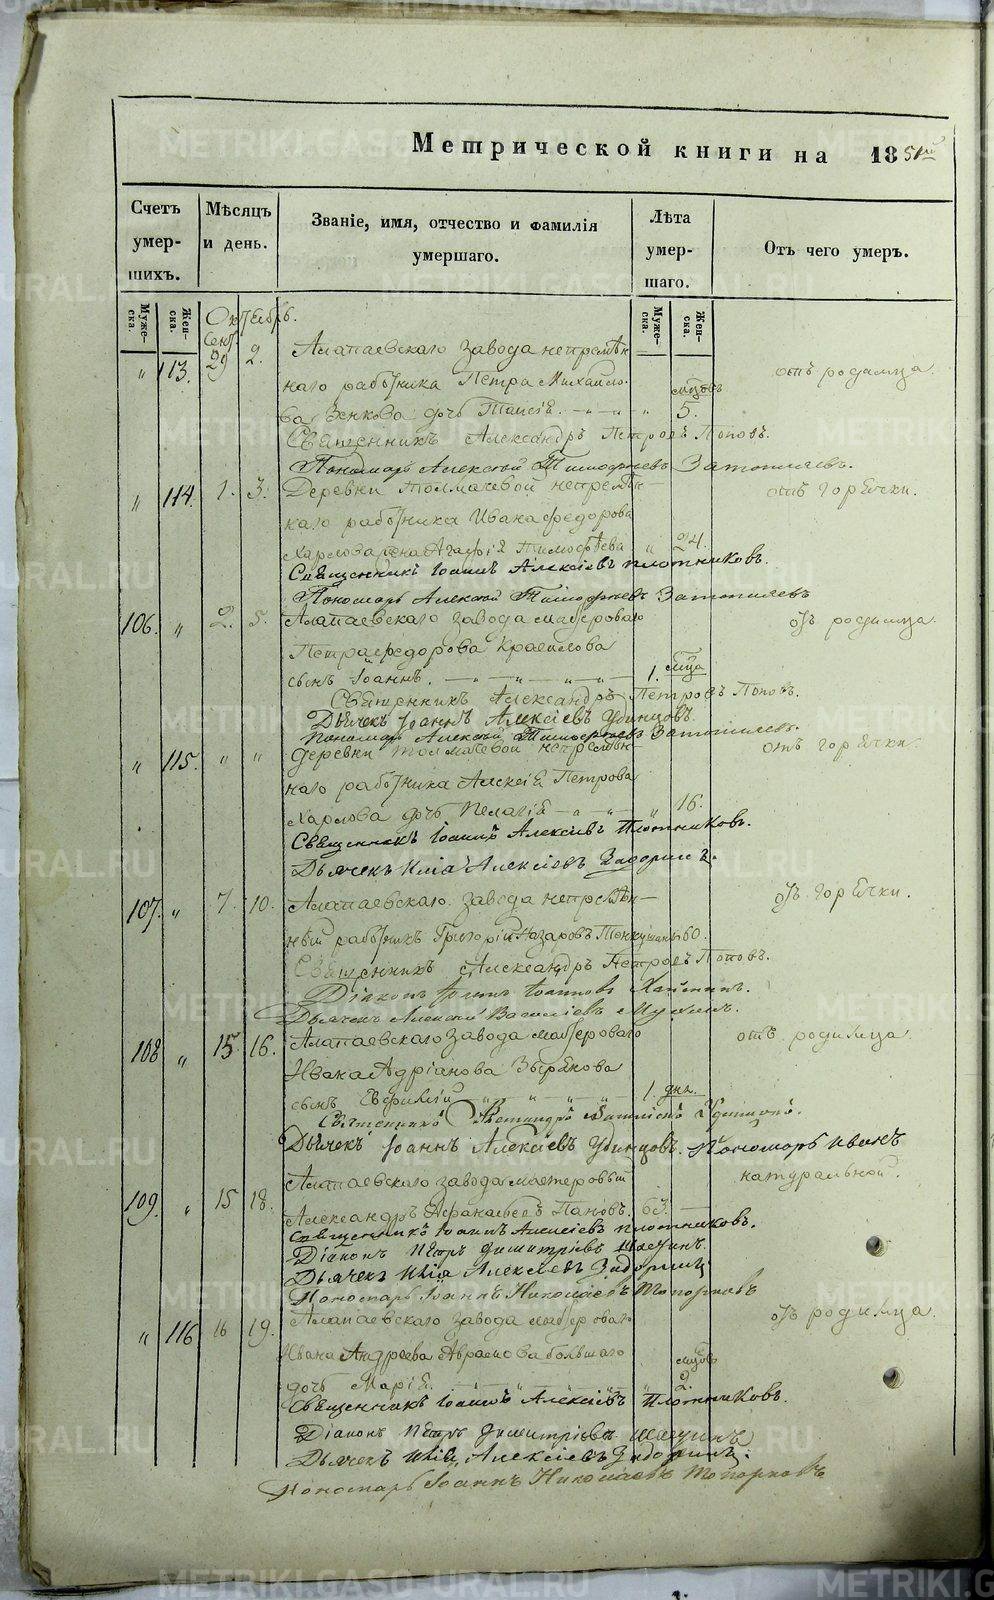 Метрической книги на 1851й
Счетъ умершихъ.
Мѣсяцъ и день.
Званіе, имя, отчество и фамилія умершаго.
Лѣта умершаго.
Отъ чего умеръ.
Мужеска.
Женска.
Мужеска.
Женска.
Октябрь.
Сент.
" 113. 29 2. Алапаевскаго завода непремѣн
наго работника Петра Михайло- мцовъ отъ родимца.
ва Зенкова дочь Таисія. " 5.
Священникъ Александръ Петровъ Поповъ.
Пономарь Алексѣй Тимофѣевъ Затопляевъ.
" 114. 1. 3. Деревни Толмачевой непремѣн- отъ горячки.
наго работника Ивана Федорова
Харлова жена Агафія Тимофѣева " 24.
Священникъ Іоаннъ Алексіевъ Плотниковъ.
Пономарь Алексѣй Тимофѣевъ Затопляевъ
106. " 2. 5. Алапаевскаго завода мастероваго отъ родимца.
Петра Федорова
сынъ Іоаннъ. 1. мца
Священникъ Александръ Петровъ Поповъ.
Дьячекъ Іоаннъ Алексіевъ Удинцовъ.
Пономарь Алексѣй Тимофѣевъ Затопляевъ.
" 115. " " Деревни Толмачевой непремѣн- отъ горячки.
наго работника Алексія Петрова
Харлова дочь Пелагія " 16.
Священникъ Іоаннъ Алексіевъ Плотниковъ.
Дьячекъ Илія Алексіевъ
107. " 7. 10. Алапаевскаго завода непремѣн- отъ горячки.
ный работникъ Григорій Назаровъ 60.
Священникъ Александръ Петровъ Поповъ.
Діаконъ
Дьячекъ Алексѣй Василіевъ
108 " 15 16. Алапаевскаго завода мастероваго отъ родимца
Ивана Адріанова Зырянова
сынъ Евфимій 1. дня.
Священникъ
Дьячекъ Іоаннъ Алексіевъ Удинцовъ. Пономарь Иванъ
109. " 15 18. Алапаевскаго завода мастеровый натуральной.
Александръ Афанасьевъ Пановъ. 63.
Священникъ Іоаннъ Алексіевъ Плотниковъ.
Діаконъ Петръ Димитріевъ
Дьячекъ Илія Алексіевъ
Пономарь Іоаннъ Николаевъ Топорковъ
" 116 16 19. Алапаевскаго завода мастероваго отъ родимца.
Ивана Андреева Абрамова большаго мцовъ
дочь Марія. " 2.
Священникъ Іоаннъ Алексіевъ Плотниковъ.
Діаконъ Петръ Димитріевъ
Дьячекъ Илія Алексіевъ
Пономарь Іоаннъ Николаевъ Топорковъ
METRIKI.GASO-URAL.RU